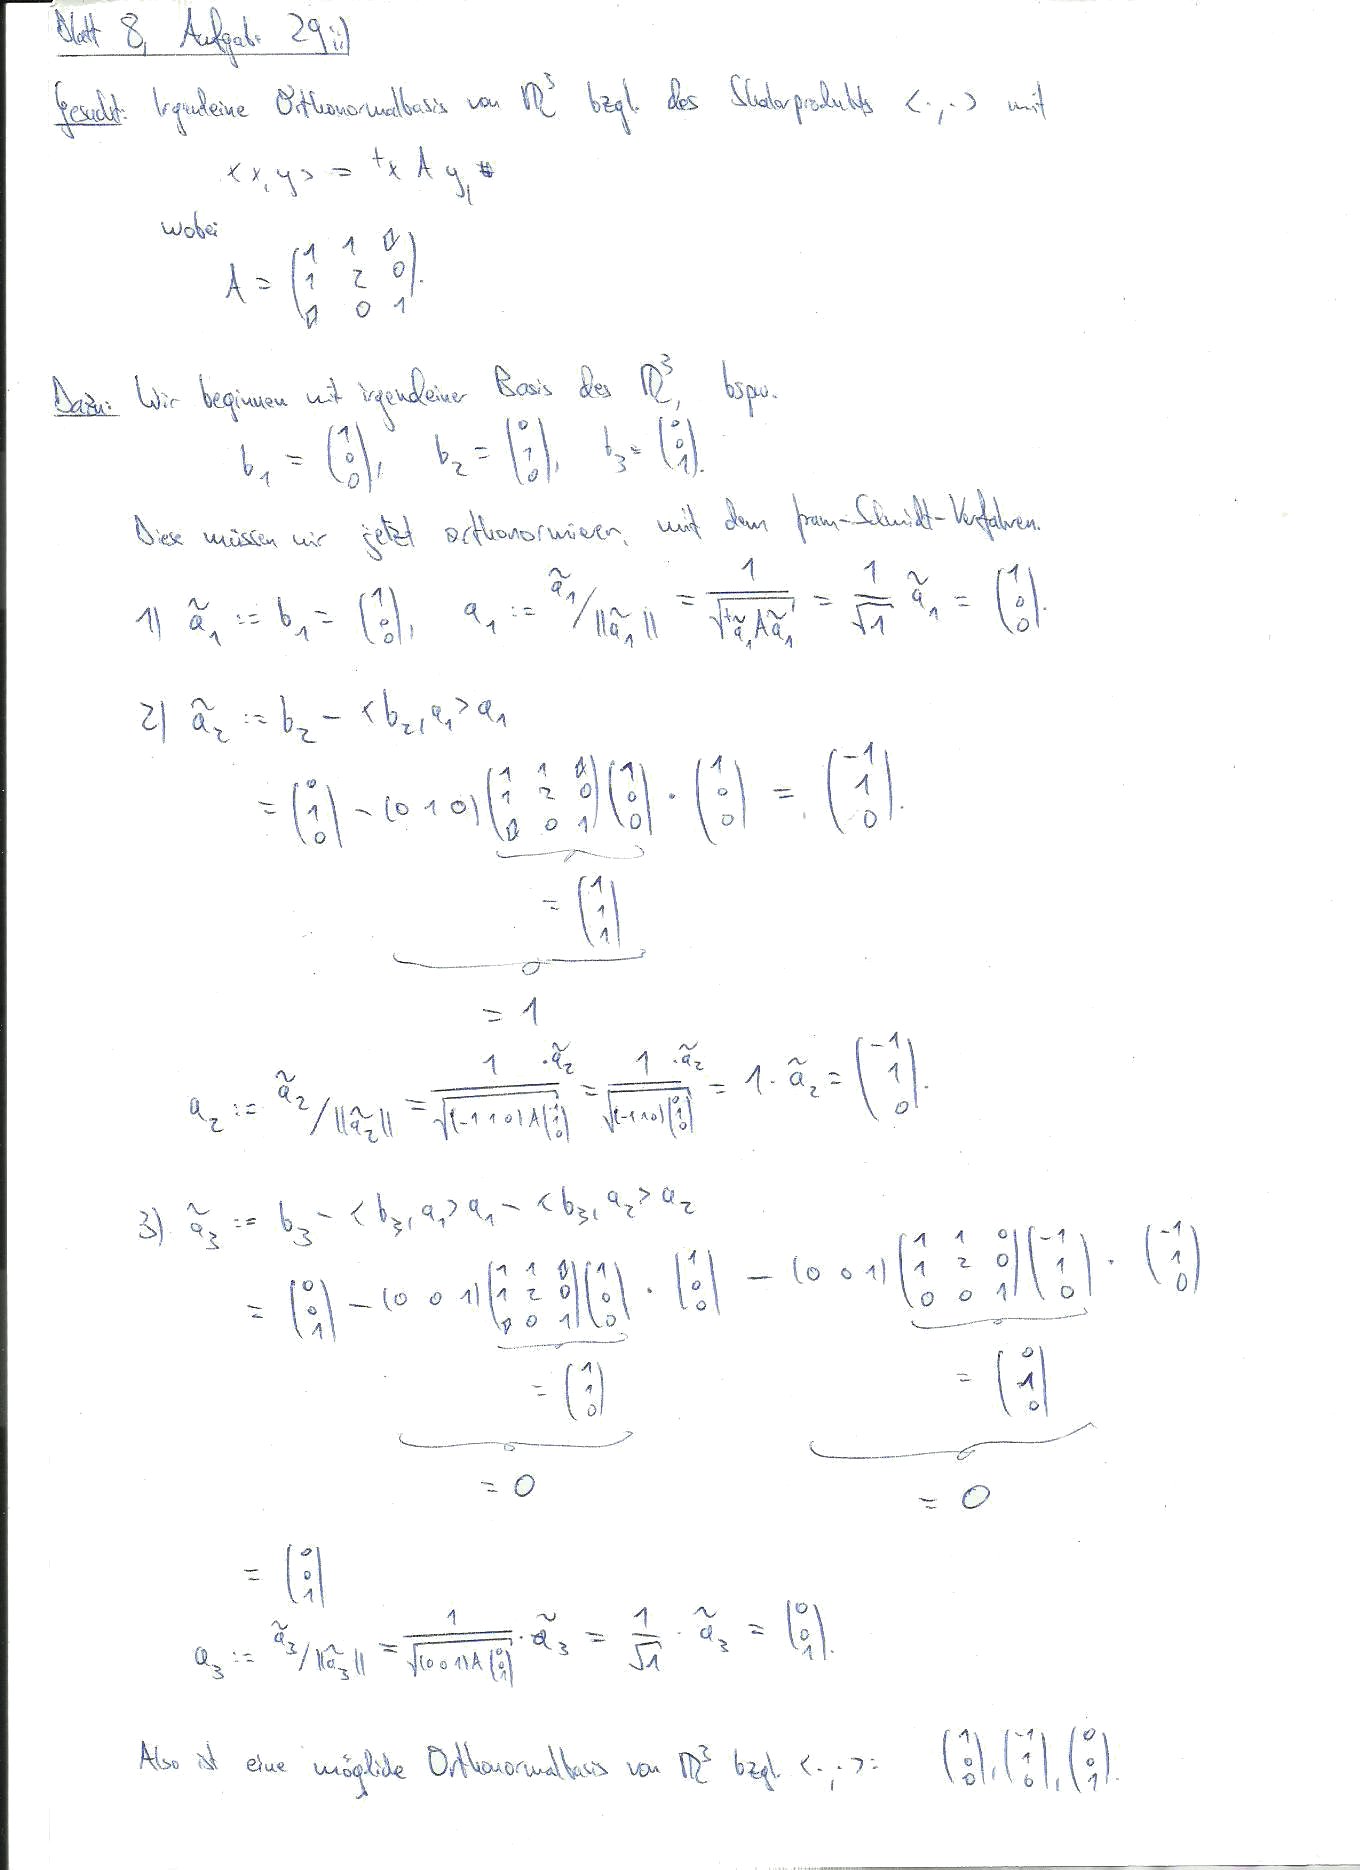 Blatt 8, Aufgabe 29ii)
Gesucht: Irgendeine Orthonormalbasis von ℝ³ bzgl. des Skalarprodukts <·,·> mit
<x,y> = ᵗx A y,
wobei
A = (1 1 0; 1 2 0; 0 0 1).
Dazu: Wir beginnen mit irgendeiner Basis des ℝ³, bspw.
b₁ = (1 0 0), b₂ = (0 1 0), b₃ = (0 0 1).
Diese müssen wir jetzt orthonormieren, mit dem Gram-Schmidt-Verfahren.
1) ã₁ := b₁ = (1 0 0), a₁ := ã₁/||ã₁|| = 1/√(ᵗã₁Aã₁) = 1/√1 ã₁ = (1 0 0).
2) ã₂ := b₂ - <b₂,a₁>a₁
= (0 1 0) - (0 1 0) (1 1 0; 1 2 0; 0 0 1) (1 0 0) · (1 0 0) = (-1 1 0).
= (1 1 1)
= 1
a₂ := ã₂/||ã₂|| = 1/√((-1 1 0) A (-1 1 0)) · ã₂ = 1/√((-1 1 0) (0 1 0)) · ã₂ = 1 · ã₂ = (-1 1 0).
3) ã₃ := b₃ - <b₃,a₁>a₁ - <b₃,a₂>a₂
= (0 0 1) - (0 0 1) (1 1 0; 1 2 0; 0 0 1) (1 0 0) · (1 0 0) - (0 0 1) (1 1 0; 1 2 0; 0 0 1) (-1 1 0) · (-1 1 0)
= (1 1 0) = (0 1 0)
= 0 = 0
= (0 0 1)
a₃ := ã₃/||ã₃|| = 1/√((0 0 1) A (0 0 1)) · ã₃ = 1/√1 · ã₃ = (0 0 1).
Also ist eine mögliche Orthonormalbasis von ℝ³ bzgl. <·,·>: (1 0 0), (-1 1 0), (0 0 1).